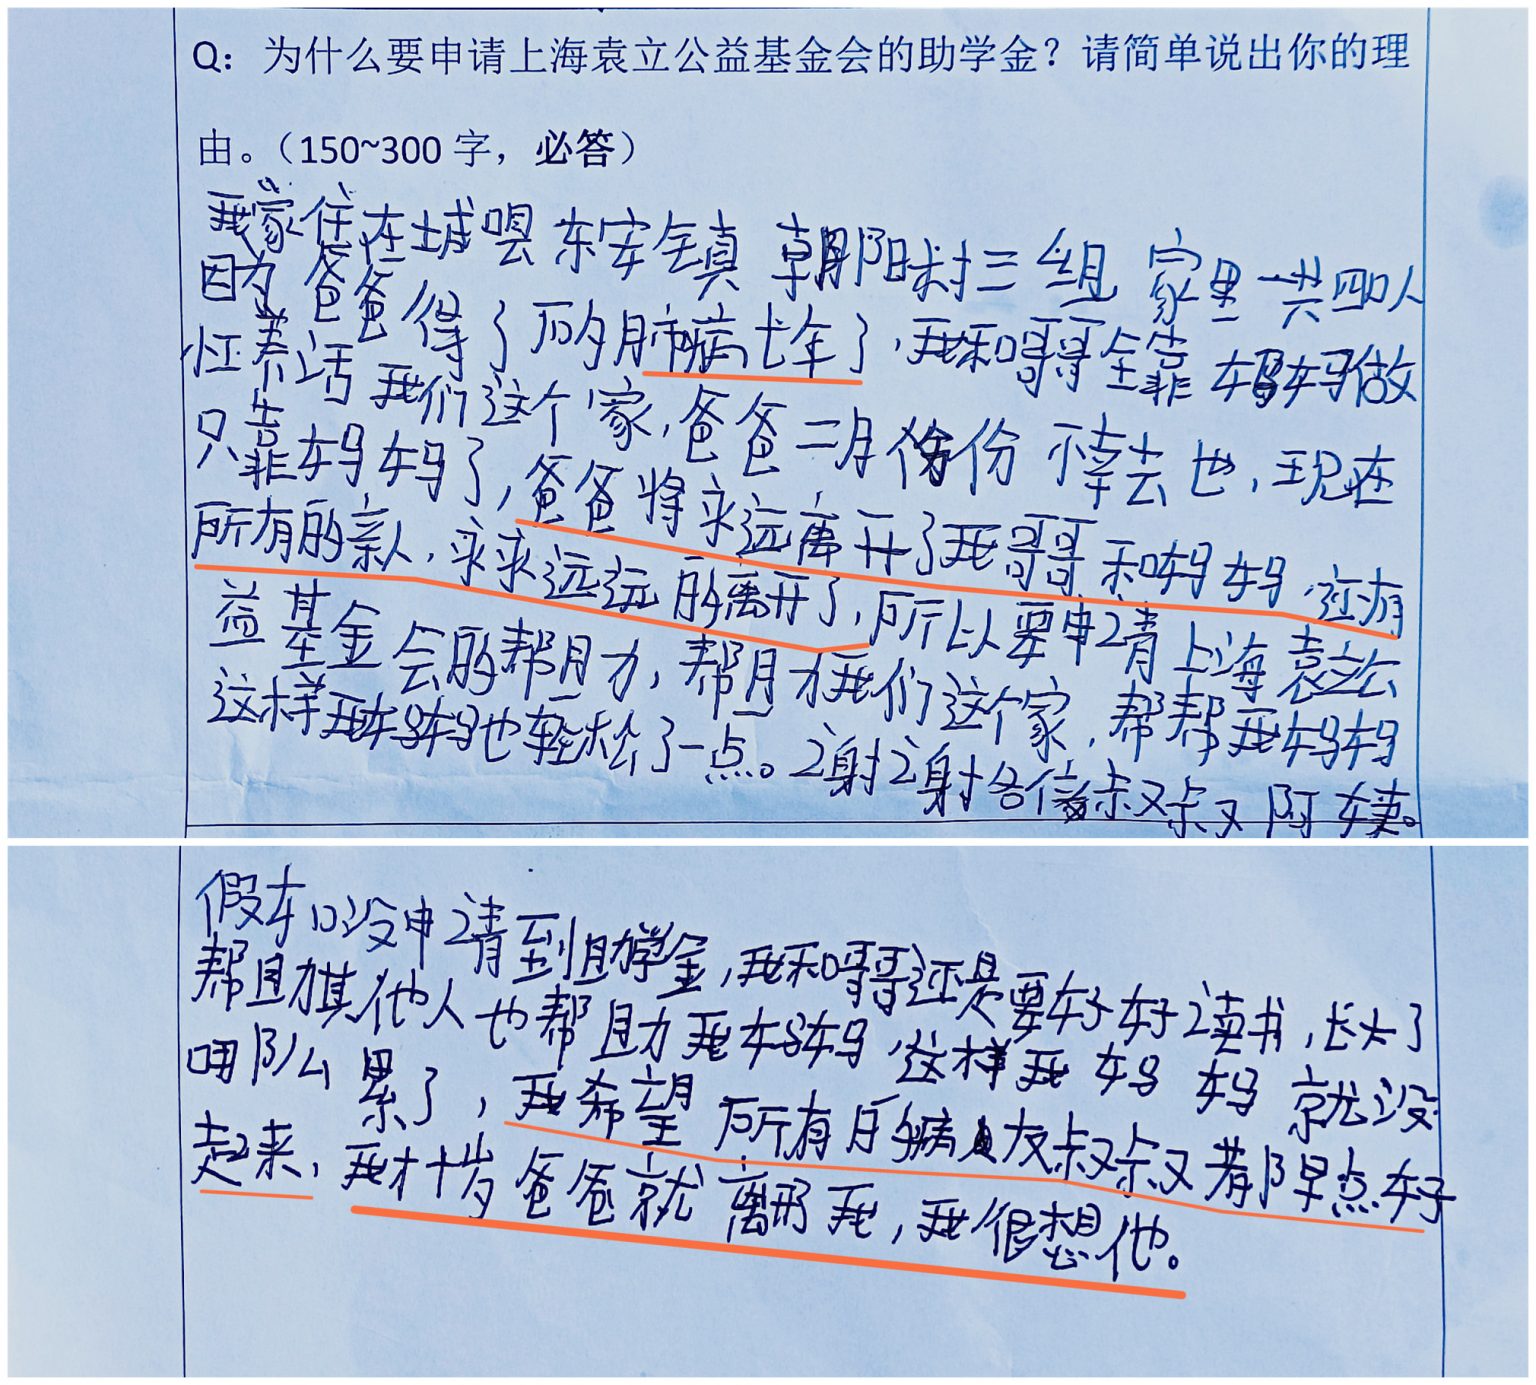 Q：为什么要申请上海袁立公益基金会的助学金？请简单说出你的理
由。（150~300 字，必答）
我家住在城 东安镇 朝阳村三组 家里一共四口人
因为爸爸得了 肺病七年了，我和哥哥全靠妈妈做
养活我们这个家，爸爸二月份 不幸去也，现在
只靠妈妈了，爸爸将永远离开了我哥哥和妈妈，还有
所有的亲人，永永远远的离开了，所以要申请上海袁立公
益基金会的帮助，帮助我们这个家，帮帮我妈妈
这样我妈妈也轻松了一点。谢谢各位叔叔阿姨。
假如没申请到助学金，我和哥哥还是要好好读书，长大了
帮助其他人也帮助我妈妈，这样我妈妈就没
那么累了，我希望所有 病 友叔叔 都早点好
起来，我才十岁爸爸就离开我，我很想他。